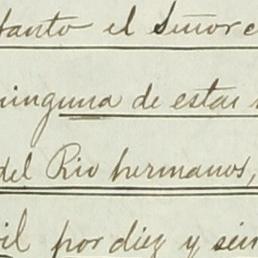 tanto el Señor
ninguna de estas
del Rio hermanos,
por diez y seis